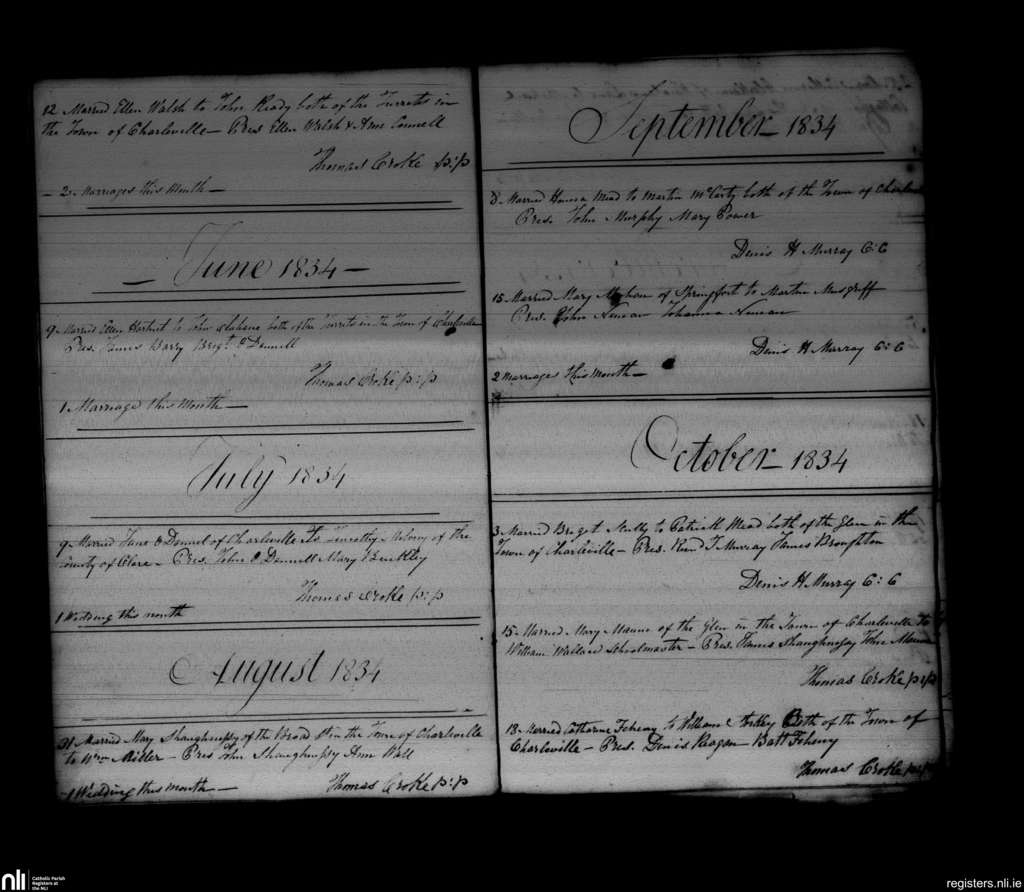 12 Married Ellen Walsh to John Ready both of the Turrets in
the Town of Charleville — Pres Ellen Walsh & Ann Connell
Thomas Croke p:p
— 2 Marriages this Month —
— June 1834 —
9 Married Ellen Hartnet to John both of the Turrets in the Town of Charleville
Pres. James Barry Brigt. O Donnell
Thomas Croke p:p
1 Marriage this Month —
July 1834
9 Married Jane O Donnel of Charleville To Timothy Molony of the
County of Clare — Pres. John O Donnell Mary Binkley
Thomas Croke p:p
1 Wedding this month
August 1834
31 Married Mary Shaughnessy of the Broad St in the Town of Charleville
to Wm Miller — Pres John Shaughnessy Ann Wall
Thomas Croke p:p
1 Wedding this month —
September 1834
8 Married Honora Mead to Martin McCarty both of the Town of
Pres. John Murphy Mary Power
Denis H Murray C:C
15 Married Mary of Springfort to Martin
Pres. John Johanna
Denis H Murray C:C
2 Marriages this Month —
October 1834
3 Married Bregt to Patrick Mead both of the Glen in the
Town of Charleville — Pres. Revd T Murray James Broughton
Denis H Murray C:C
15 Married Mary Manne of the Glen in the Town of Charleville to
William Wallace Schoolmaster — Pres. James Shaughnessy John
Thomas Croke p:p
18 Married Catharine to William Both of the Town of
Charleville — Pres. Denis Reagan Batt
Thomas Croke p:p
nli
Catholic Parish
Registers at
the NLI
registers.nli.ie